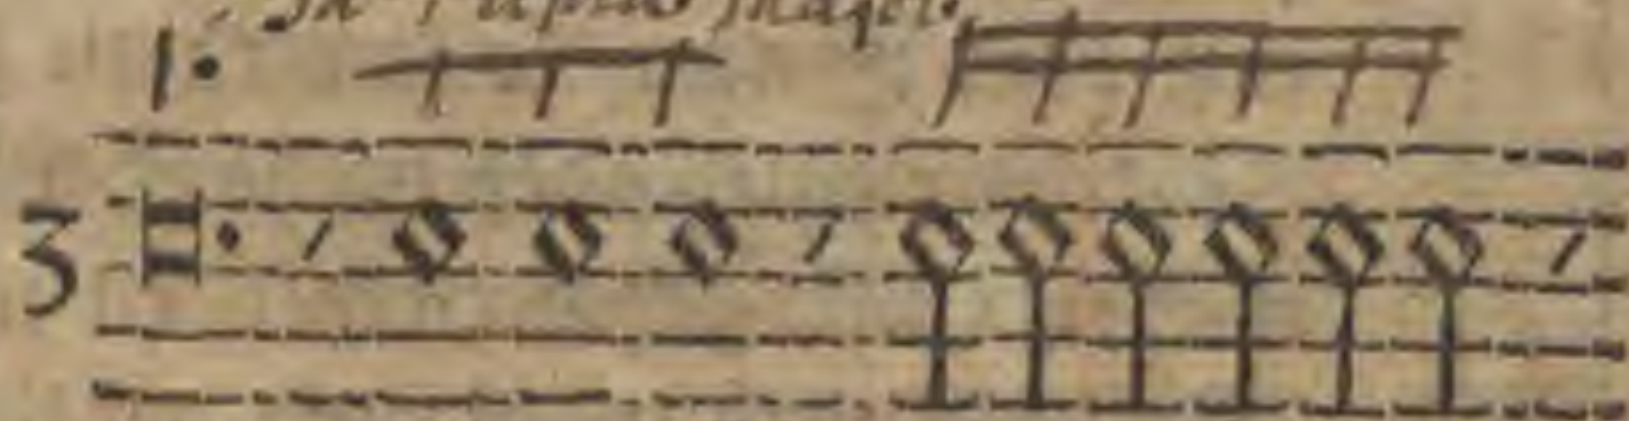 In Tripla Major.
1.
3